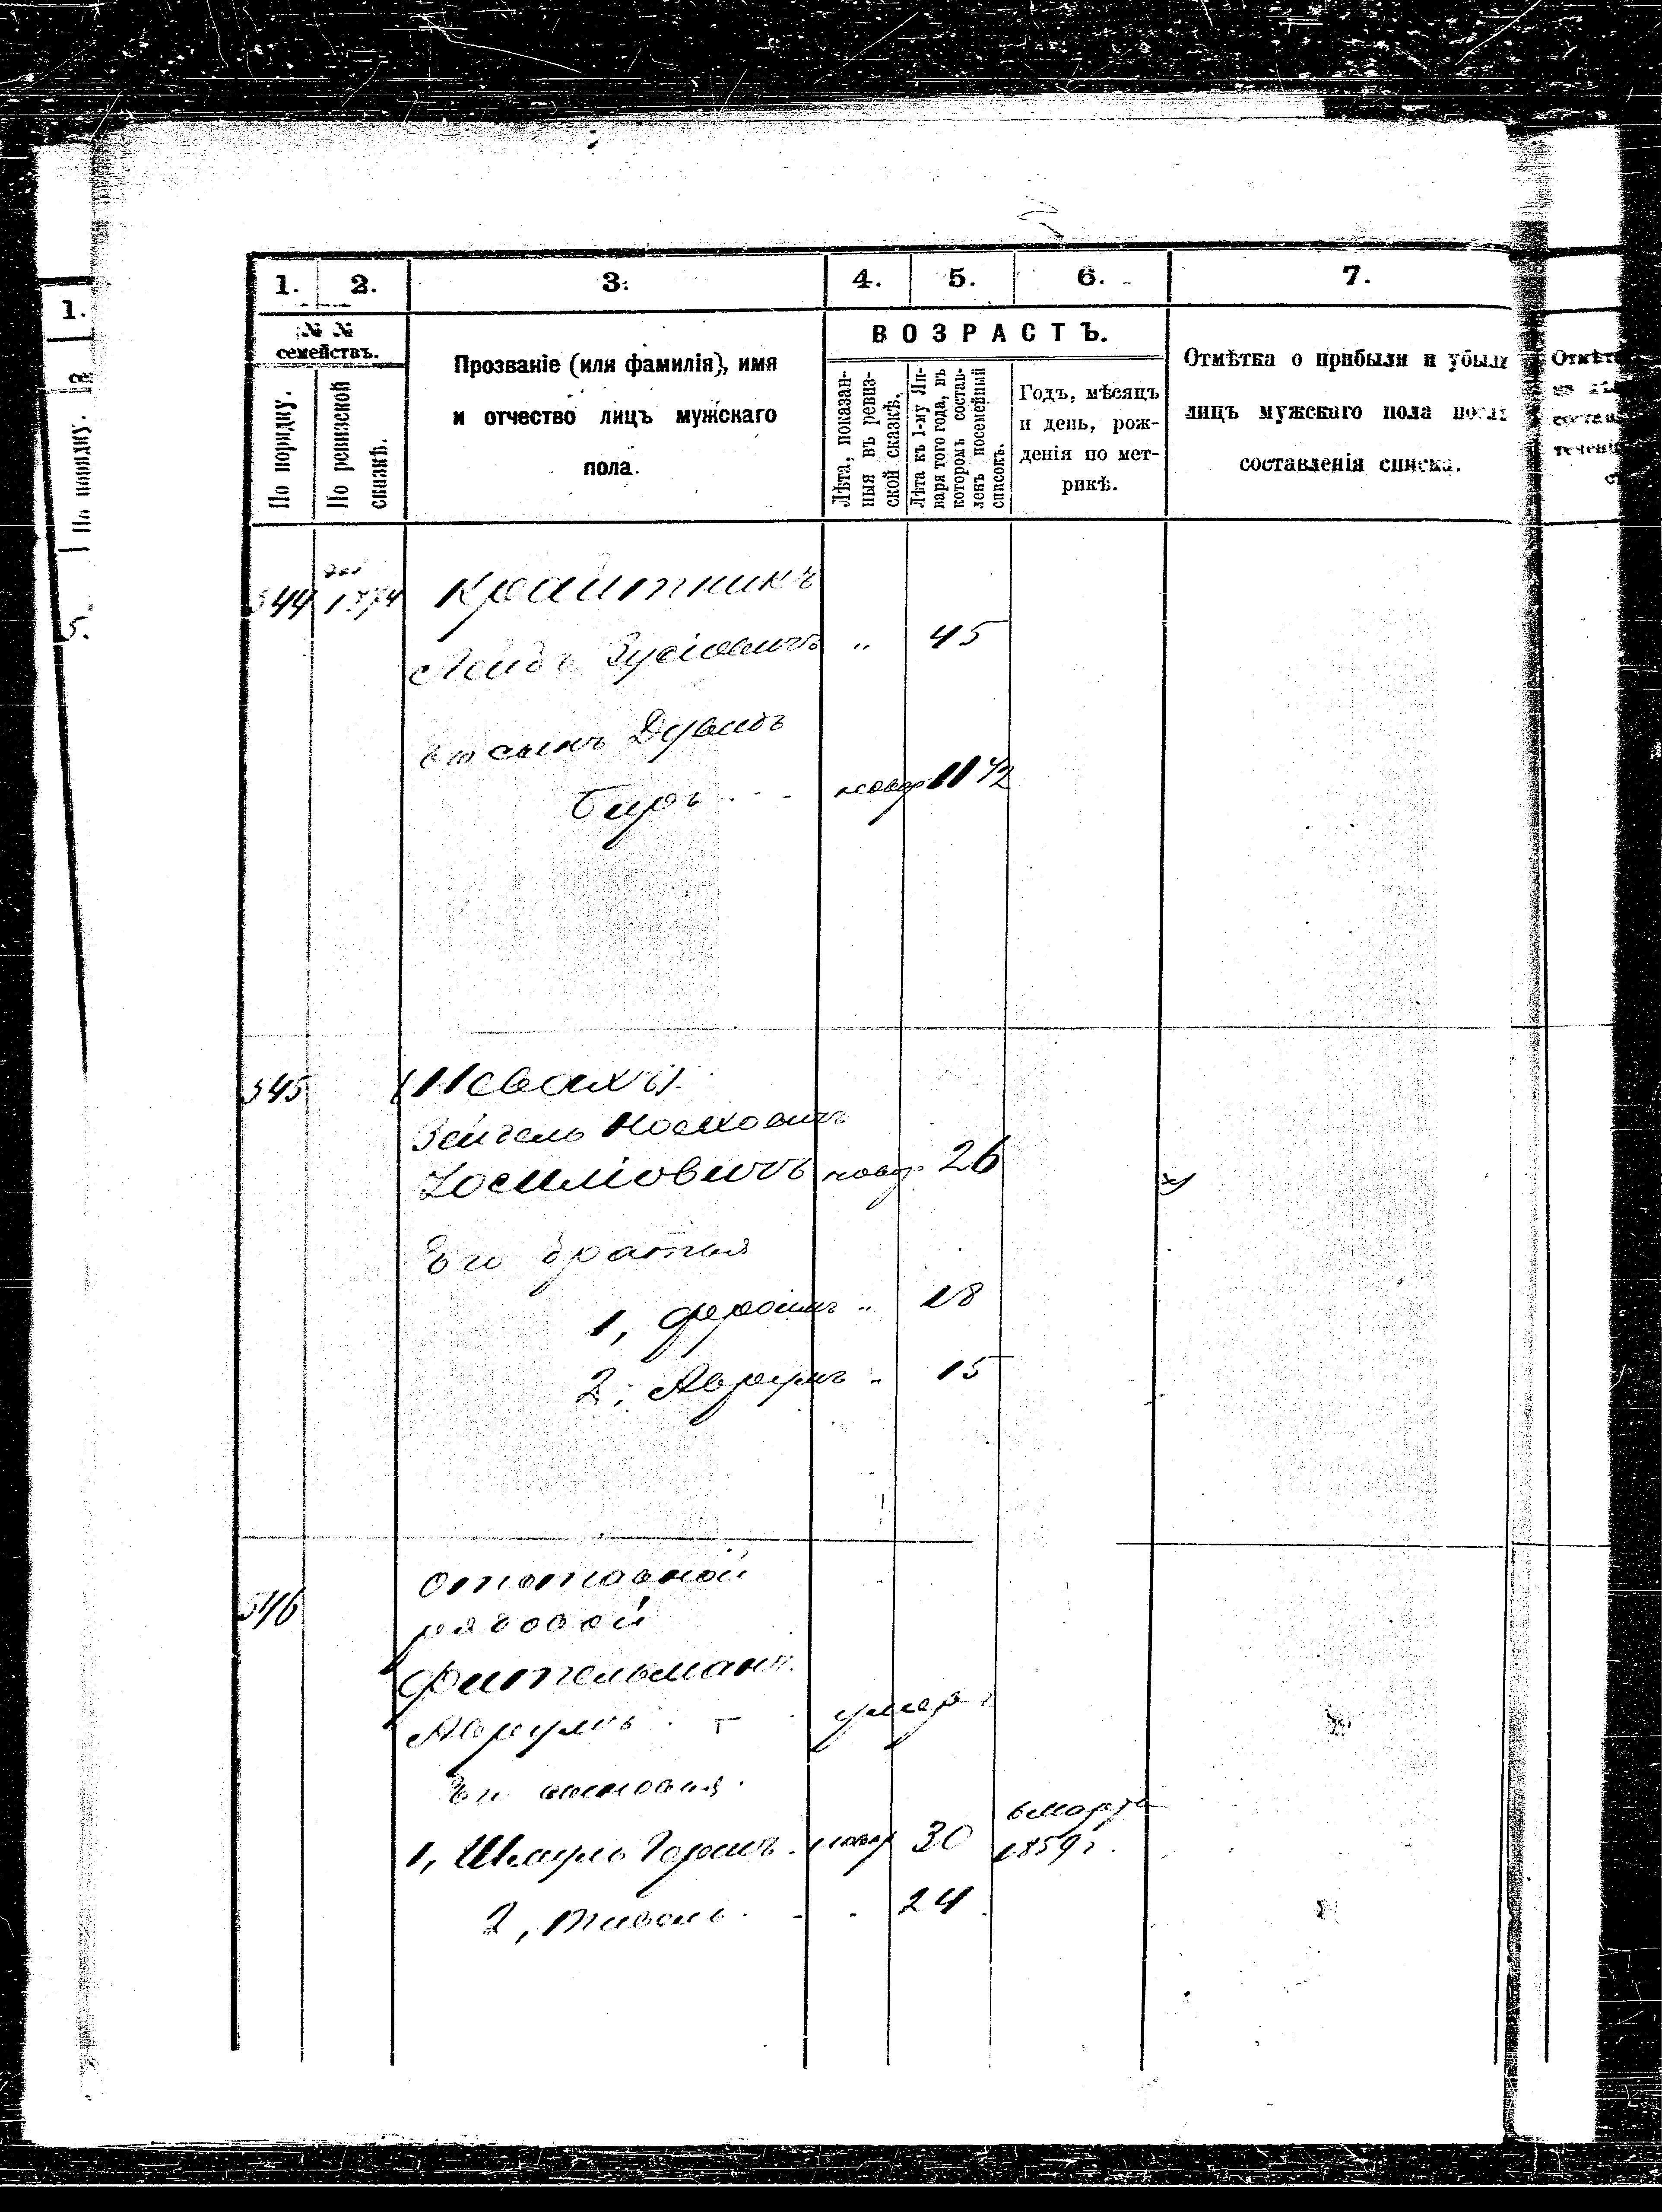 1.
2.
3.
4.
5.
6.
7.
№ №
семействъ.
По порядку.
По ревизской
сказкѣ.
Прозваніе (или фамилія), имя
и отчество лицъ мужскаго
пола.
ВОЗРАСТЪ.
Лѣта, показан-
ныя въ ревиз-
ской сказкѣ.
Лѣта къ 1-му Ян-
варя того года, въ
которомъ состав-
ленъ посемейный
списокъ.
Годъ, мѣсяцъ
и день, рож-
денія по мет-
рикѣ.
Отмѣтка о прибыли и убыли
лицъ мужскаго пола послѣ
составленія списка.
1.
По порядку.
5.
544
Крайтникъ
Лейбъ Зусіовичъ " 45
его сынъ Дувидъ
Беръ новор 11 1/2
545
(Невахъ)
Зейгель
новор 26
Его братья
1, Фроимъ " 18
2, Аврумъ " 15
546
отставной
рядовой
Фительманъ
Аврумъ умеръ
Его сыновья
1, Шмуль Гершъ новор 30 6 марта
1859 г.
2, 24